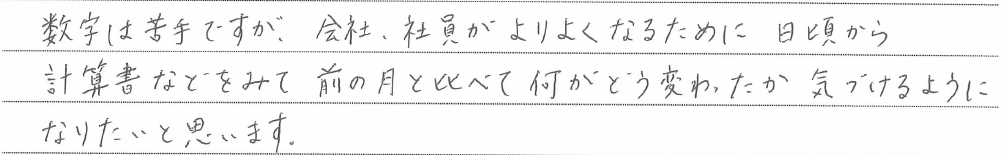 数字は苦手ですが、会社、社員がよりよくなるために 日頃から
計算書などをみて 前の月と比べて何がどう変わったか 気づけるように
なりたいと思います。